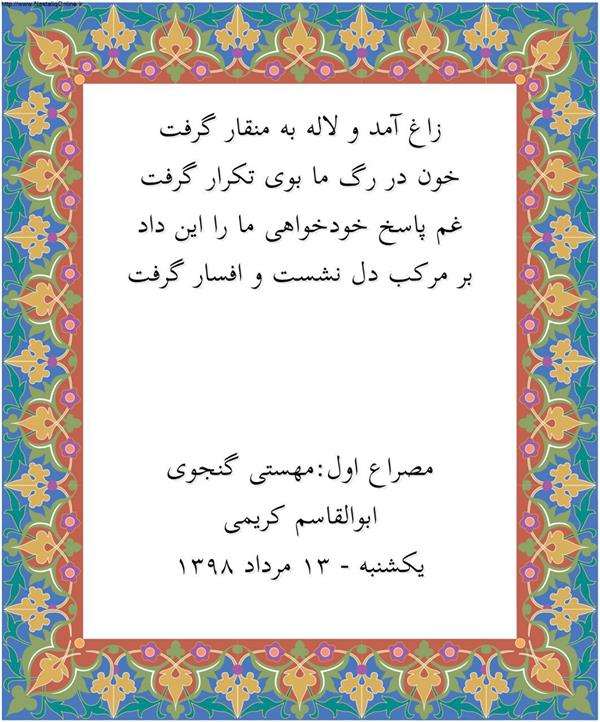 http://www.NastaliqOnline.ir
زاغ آمد و لاله به منقار گرفت
خون در رگ ما بوی تکرار گرفت
غم پاسخ خودخواهی ما را این داد
بر مرکب دل نشست و افسار گرفت
مصراع اول:مهستی گنجوی
ابوالقاسم کریمی
یکشنبه - ۱۳ مرداد ۱۳۹۸